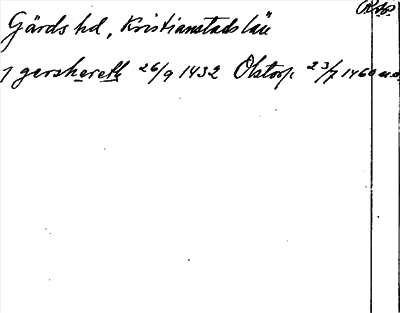 Gärds hd, Kristianstads län
j gershereth 26/9 1432 Olstorp 23/7 1460